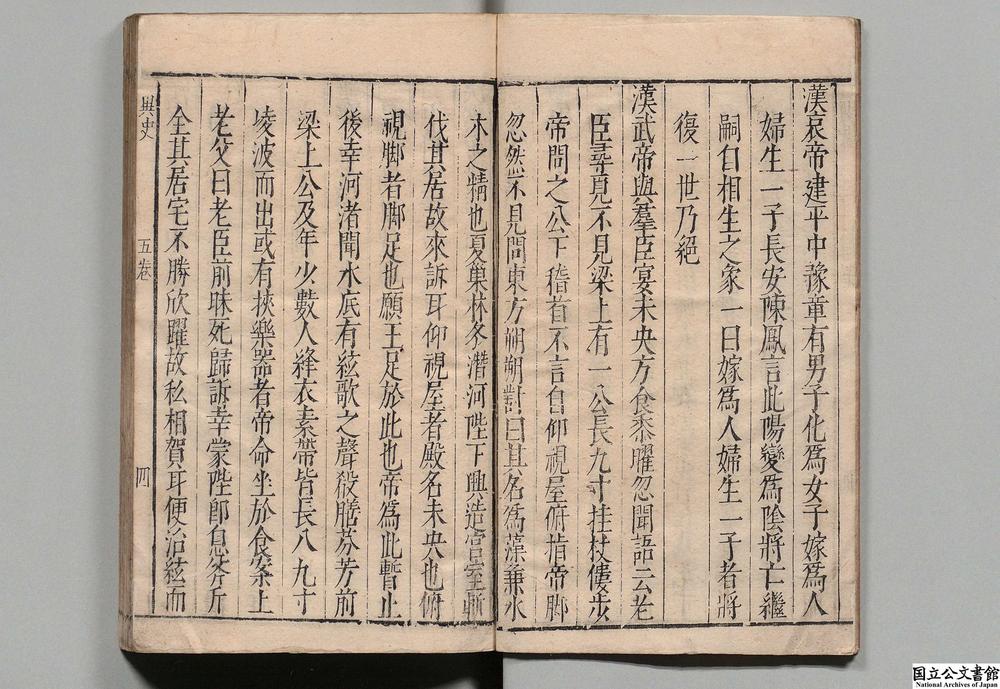 漢哀帝建平中豫章有男子化爲女子嫁爲人
婦生一子長安陳鳳言此陽變爲隂將亡繼
嗣自相生之象一曰嫁爲人婦生一子者將
復一世乃絕
漢武帝與羣臣宴未央方食黍臛忽聞語云老
臣尋覓不見梁上有一公長九寸拄杖僂步
帝問之公下稽首不言自仰視屋俯指帝脚
忽然不見問東方朔朔對曰其名爲藻兼水
木之精也夏巢林冬潛河陛下興造宫室斬
伐其居故來訴耳仰視屋者殿名未央也俯
視脚者脚足也願王足於此也帝爲此暫止
後幸河渚聞水底有絃歌之聲殽膳芬芳前
梁上公及年少數人絳衣素帶皆長八九寸
堎波而出或有挾樂器者帝命坐於食案上
老父曰老臣前昧死歸訴幸蒙陛卽息斧斤
全其居宅不勝欣躍故私相賀耳便治絃而
異史
五卷
四
国立公文書館
National Archives of Japan